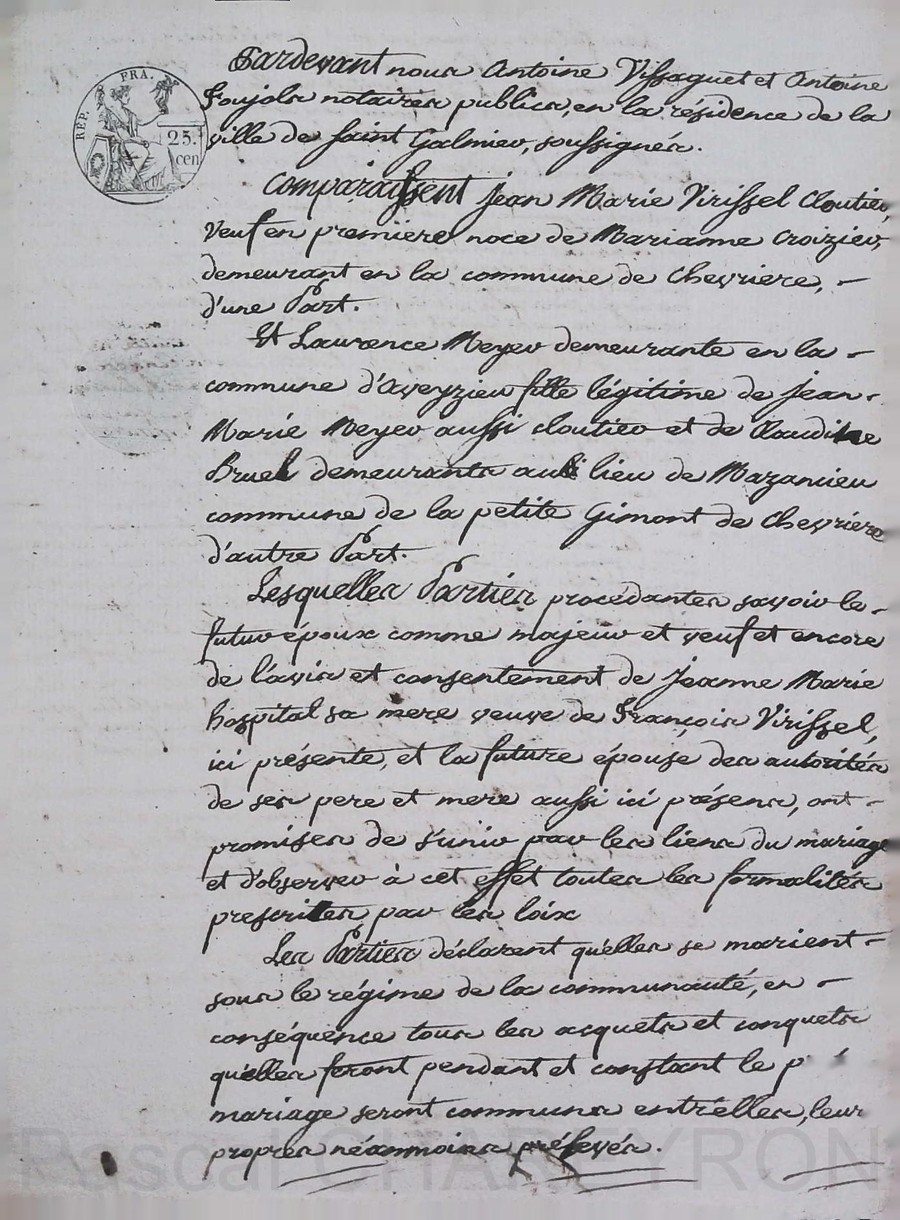 RÉP. FRA.
25.
cen
Pardevant nous Antoine Vissaguet et Antoine
Poujols notaires publics, en la résidence de la
ville de saint Galmier, soussignés.
Comparaissent Jean Marie Virissel Cloutier,
Veuf en premiere noce de Marianne Croizier,
demeurant en la commune de Chevriere, -
d'une Part.
Et Laurence Meyer demeurante en la -
commune d'Aveyzieu fille légitime de Jean-
Marie Meyer aussi cloutier et de Claudine
Bruel demeurants au lieu de Mazancieu
commune de la petite Gimont de Chevriere
d'autre Part.
Lesquelles Parties procédantes savoir le -
futur époux comme majeur et veuf et encore
de l'avis et consentement de Jeanne Marie
hospital sa mere veuve de François Virissel,
ici présente, et la future épouse des autorités
de ses pere et mere aussi ici présens, ont -
promises de s'unir par les liens du mariage
et d'observer à cet effet toutes les formalités
prescrittes par les loix
Les Parties déclarent qu'elles se marient -
sous le régime de la communauté, en -
conséquence tous les acquets et conquets
qu'elles feront pendant et constant le p
mariage seront communs entr'elles, leur
propres néanmoins prélevés.
Pascal CHAREYRON